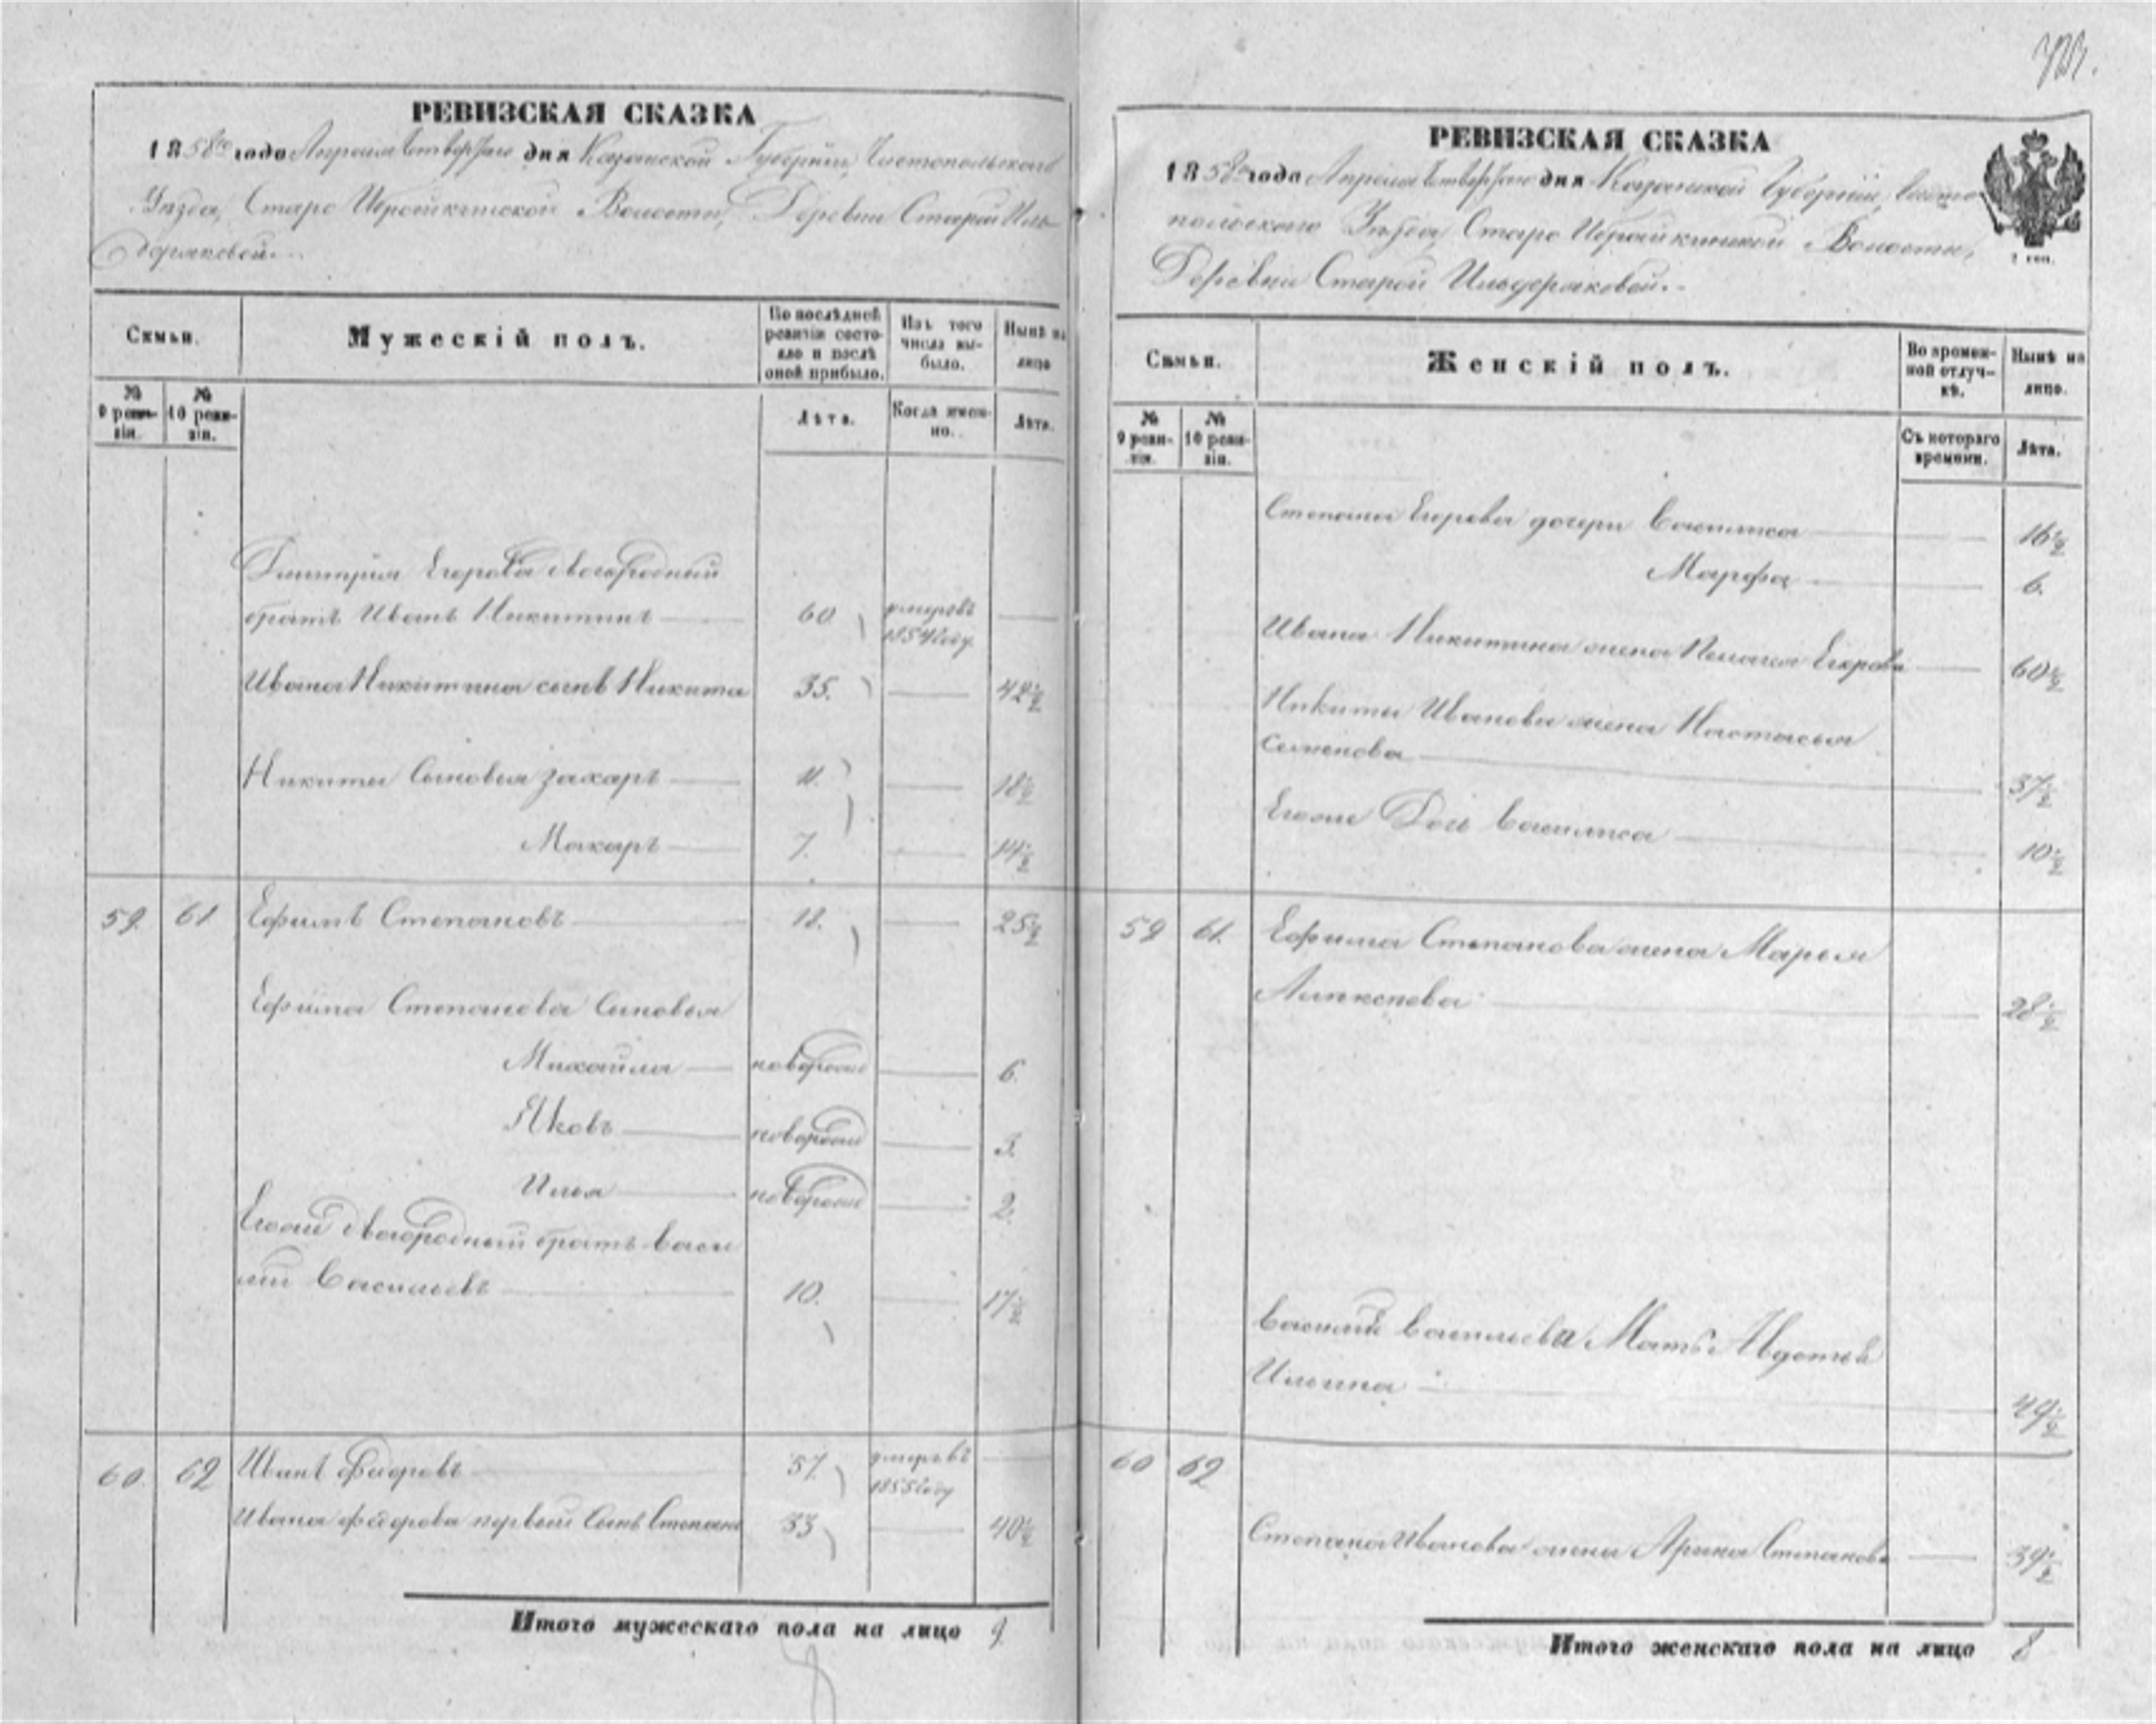 РЕВИЗСКАЯ СКАЗКА
1858го года Апреля дня Казанской Губерніи, Чистопольскаго
Уезда, Старо Ибрайкинской Волости, Деревни Старой Иль-
деряковой.
Семьи.
Мужескій полъ.
По послѣдней ревизіи состо-яло и послѣ оной прибыло.
Изъ того числа вы-было.
Нынѣ на лицо
№ 9 реви-зіи.
№ 10 реви-зіи.
Лѣта.
Когда имен-но.
Лѣта.
Димитрія Егорова двоюродный
братъ Иванъ Никитинъ 60 умеръ въ 1854 году
Ивана Никитина сынъ Никита 35. 42½
Никиты Сыновья Захаръ 11. 18½
Макаръ 7. 14½
59. 61 Ефимъ Степановъ 18. 25½
Ефима Степанова Сыновья
Михайла новорожд 6.
Яковъ новорожд 3.
Илья новорожд 2.
Егоже двоюродный братъ Васи
лий Васильевъ 10. 17½
60. 62 Иванъ Федоровъ 57. умеръ въ 1855 году
Ивана Федорова первый Сынъ Степанъ 33 40½
Итого мужескаго пола на лицо 9.
РЕВИЗСКАЯ СКАЗКА
1858го года Апреля дня Казанской Губерніи, Чисто
польскаго Уѣзда, Старо Ибрайкинской Волости,
Деревни Старой Ильдеряковой.
Семьи.
Женскій полъ.
Во времен-ной отлуч-кѣ.
Нынѣ на лицо.
№ 9 реви-зіи.
№ 10 реви-зіи.
Съ котораго времени.
Лѣта.
Степана Егорова дочери Василиса 16½
Марфа 6.
Ивана Никитина жена Пелагея Егорова 60½
Никиты Иванова жена Настасья
Семенова 37½
Егоже Дочь Василиса 10½
59 61. Ефима Степанова жена Марья
28½
Василия Васильева Мать Авдотья
Ильина 49½
60 62
Степана Иванова жена Арина Степанова 39½
Итого женскаго пола на лицо 8